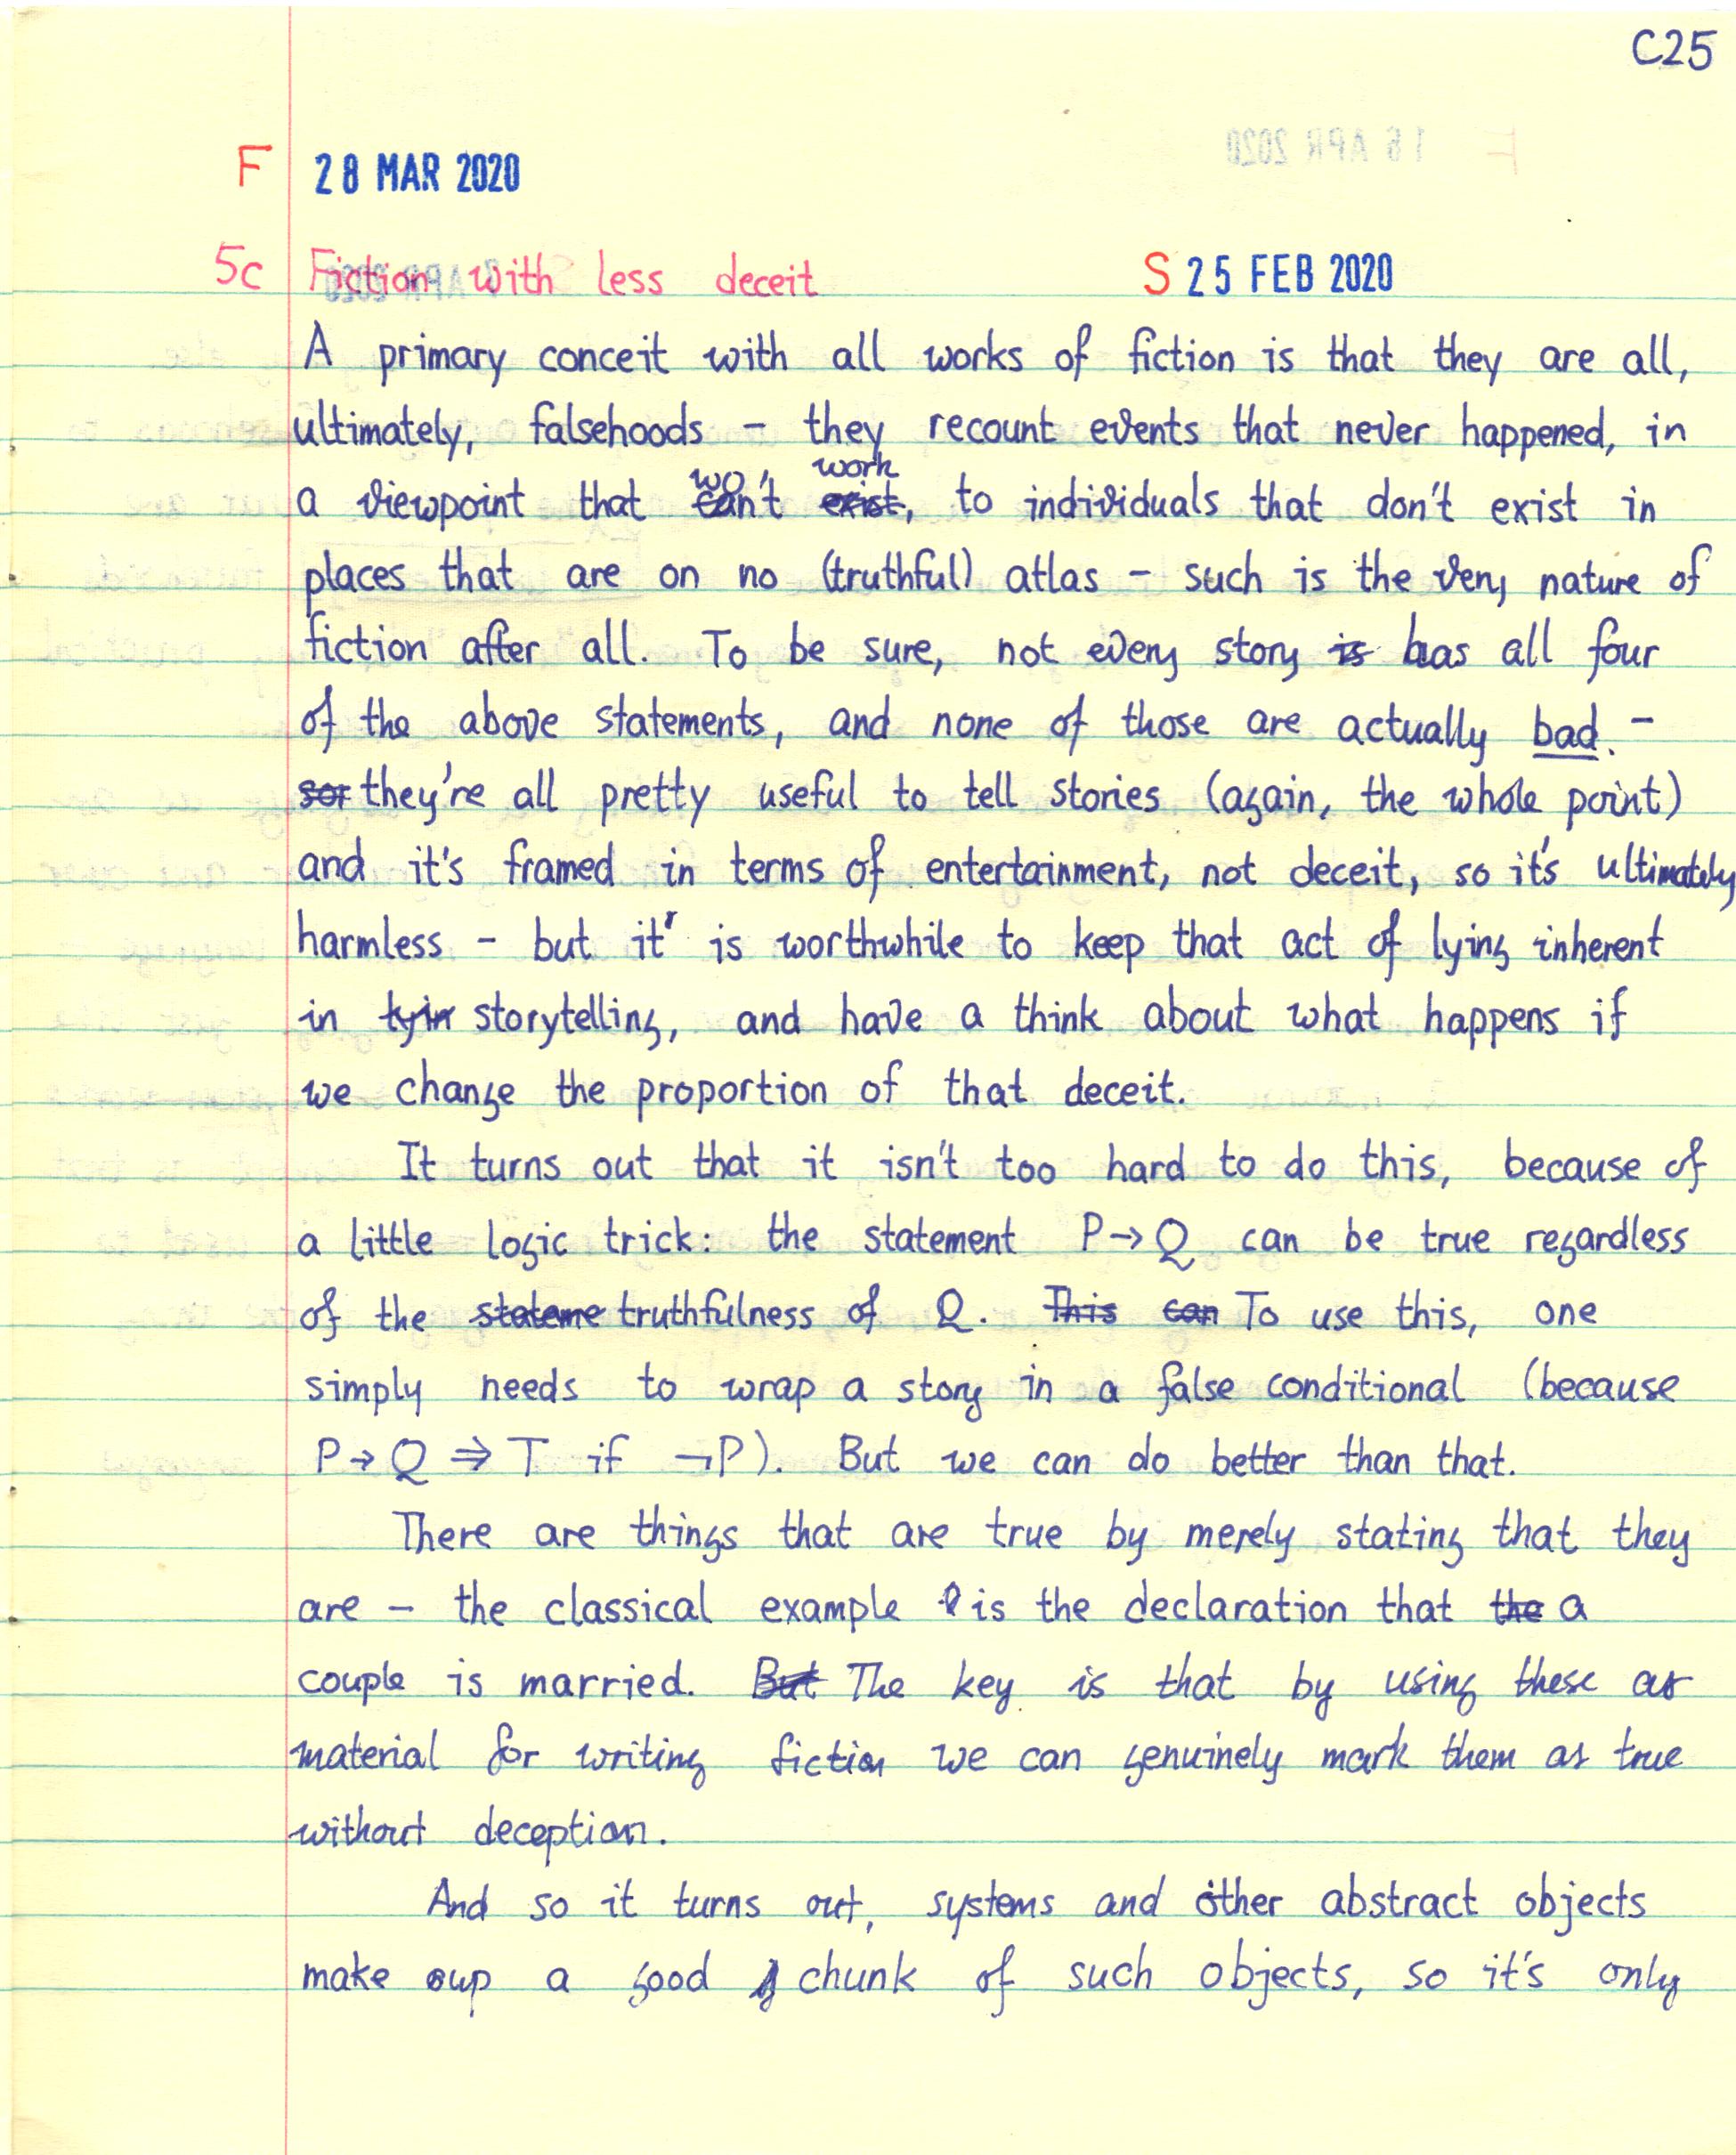 C25
F 28 MAR 2020
5c Fiction with less deceit S 25 FEB 2020
A primary conceit with all works of fiction is that they are all,
ultimately, falsehoods – they recount events that never happened, in
a viewpoint that won't work, to individuals that don't exist in
places that are on no (truthful) atlas – such is the very nature of
fiction after all. To be sure, not every story is has all four
of the above statements, and none of those are actually bad. –
sor they're all pretty useful to tell stories (again, the whole point)
and it's framed in terms of entertainment, not deceit, so it's ultimately
harmless – but it' is worthwhile to keep that act of lying inherent
in lyin storytelling, and have a think about what happens if
we change the proportion of that deceit.
It turns out that it isn't too hard to do this, because of
a little logic trick: the statement P→Q can be true regardless
of the stateme truthfulness of Q. This can To use this, one
simply needs to wrap a story in a false conditional (because
P→Q ⇒ T if ¬P). But we can do better than that.
There are things that are true by merely stating that they
are – the classical example is the declaration that the a
couple is married. But The key is that by using these as
material for writing fiction we can genuinely mark them as true
without deception.
And so it turns out, systems and other abstract objects
make up a good chunk of such objects, so it's only